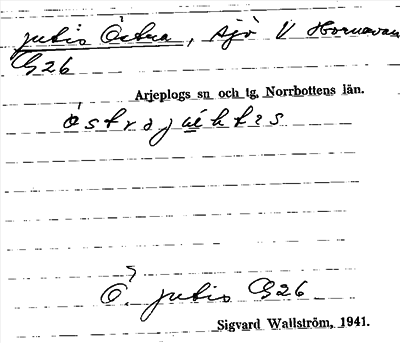 Jutis Östra, sjö V Hornavan
G26
Arjeplogs sn och tg, Norrbottens län.
Ö. Jutis G26
Sigvard Wallström, 1941.